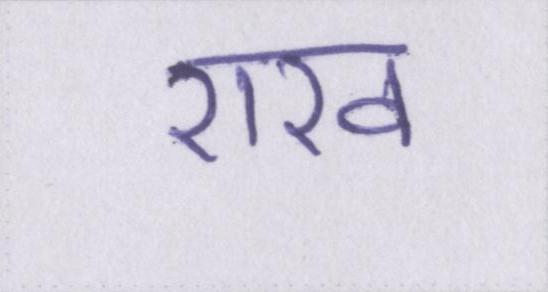 राख